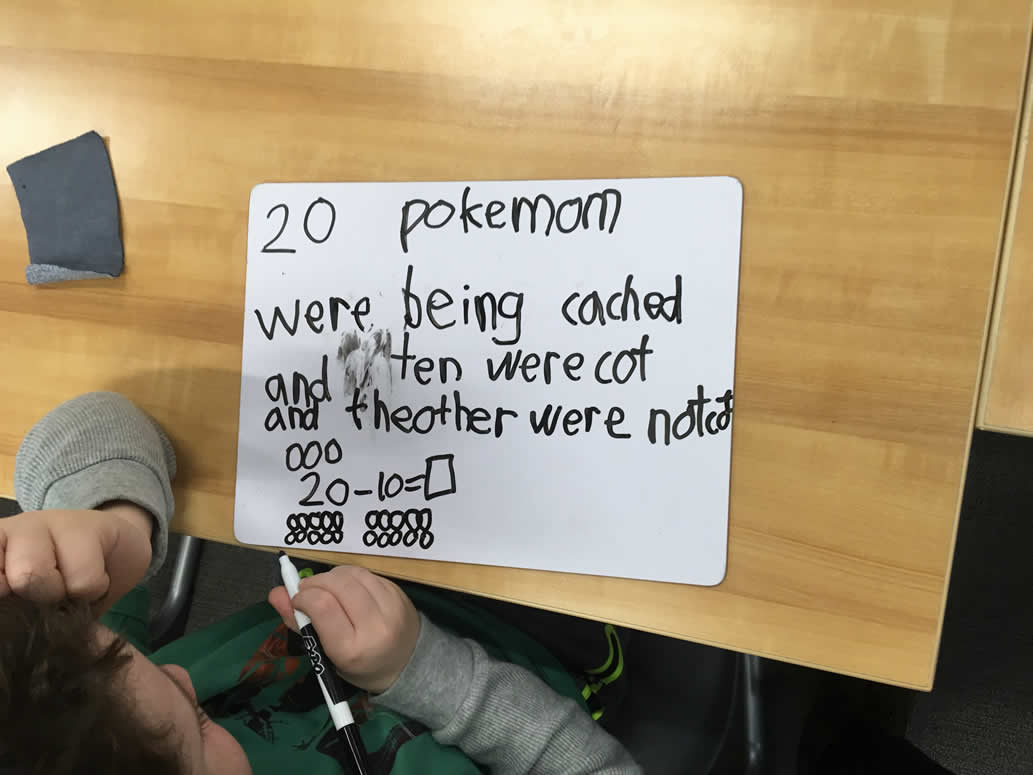 20 pokemom
were being cached
and ten were cot
and theother were notcot
000
20-10=□
EXPO